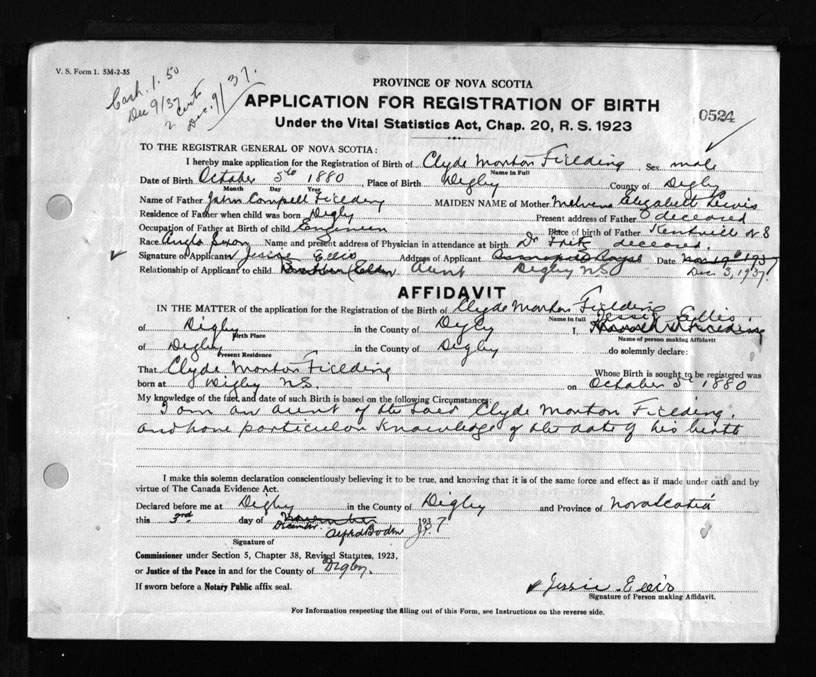 V. S. Form 1. 5M-2-35
Cash. 1.50
Dec 9/37
2 Certs
Dec. 9/37.
PROVINCE OF NOVA SCOTIA
APPLICATION FOR REGISTRATION OF BIRTH
0524
Under the Vital Statistics Act, Chap. 20, R. S. 1923
TO THE REGISTRAR GENERAL OF NOVA SCOTIA:
I hereby make application for the Registration of Birth of Clyde Morton Fielding, Sex male
Name in Full
Date of Birth October 5th 1880, Place of Birth Digby County of Digby
Month Day Year
Name of Father John Campell Fielding MAIDEN NAME of Mother Melvena Elizabeth Lewis
Residence of Father when child was born Digby Present address of Father deceased
Occupation of Father at Birth of child Engineer Place of birth of Father Kentville N S
Race Anglo Saxon Name and present address of Physician in attendance at birth Dr Fritz deceased.
Signature of Applicant Jessie Ellis Address of Applicant Annapolis Royal Date Nov 19th 1937
Relationship of Applicant to child Brother (Elder) Aunt Digby N.S. Dec 3, 1937.
AFFIDAVIT
IN THE MATTER of the application for the Registration of the Birth of Clyde Morton Fielding
Name in full Jessie Ellis
of Digby in the County of Digby I, Fielding
Birth Place Name of person making Affidavit
of Digby in the County of Digby do solemnly declare:
Present Residence
That Clyde Morton Fielding Whose Birth is sought to be registered was
born at Digby N.S. on October 5th 1880
My knowledge of the fact and date of such Birth is based on the following Circumstances:
I am an aunt of the said Clyde Morton Fielding,
and have particular knowledge of the date of his birth
I make this solemn declaration conscientiously believing it to be true, and knowing that it is of the same force and effect as if made under oath and by
virtue of The Canada Evidence Act.
Declared before me at Digby in the County of Digby and Province of Nova Scotia
this 3rd day of November 1937
December
Signature of J.P.
Commissioner under Section 5, Chapter 38, Revised Statutes, 1923,
or Justice of the Peace in and for the County of Digby.
If sworn before a Notary Public affix seal.
Jessie Ellis
Signature of Person making Affidavit.
For Information respecting the filling out of this Form, see Instructions on the reverse side.